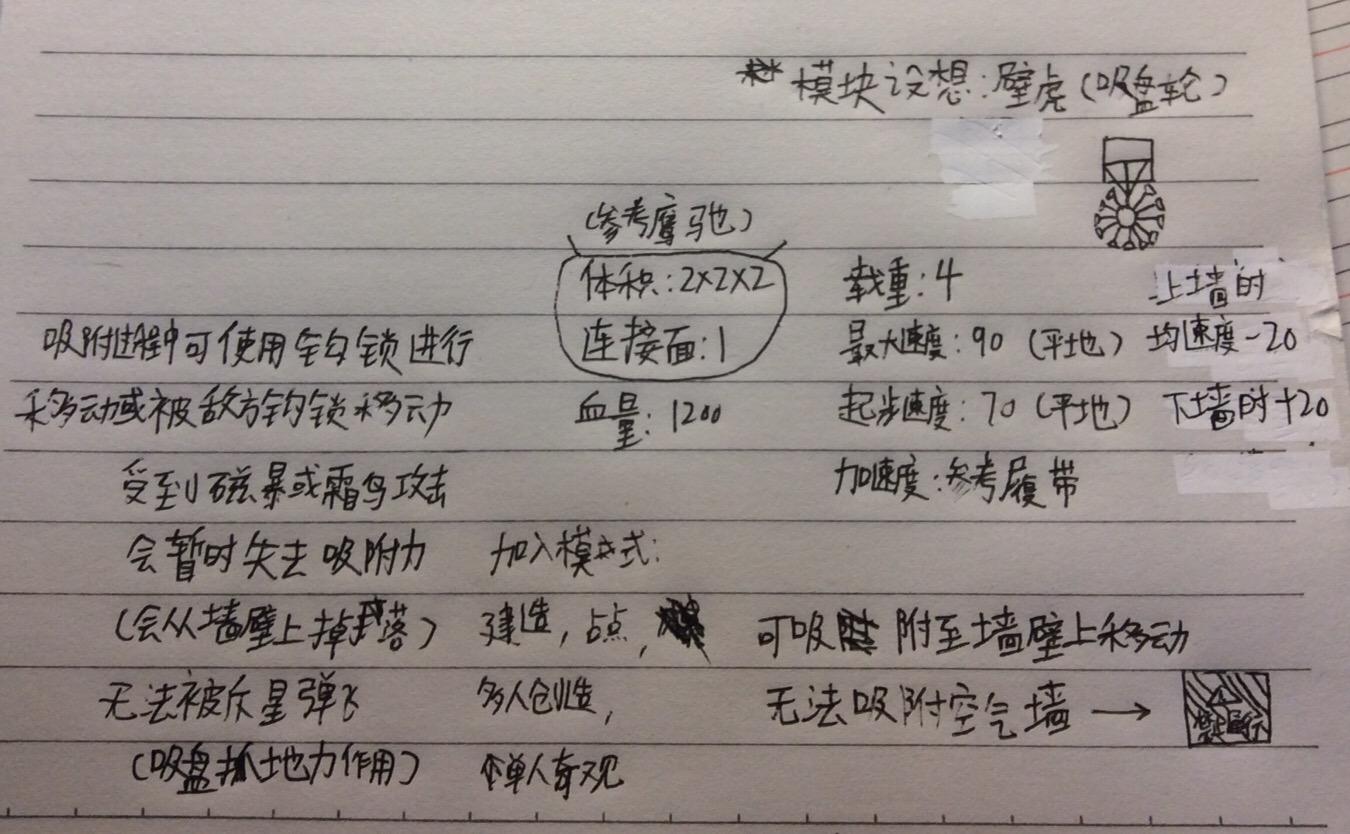 模块设想:壁虎(吸盘轮)
(参考鹰驰)
体积:2×2×2
连接面:1
血量:1200
载重:4
最大速度:90(平地)
起步速度:70(平地)
加速度:参考履带
上墙时
均速度-20
下墙时+20
吸附过程中可使用钩锁进行
移动或被敌方钩锁移动
受到磁暴或霜鸟攻击
会暂时失去吸附力
(会从墙壁上掉落)
无法被斥星弹飞
(吸盘抓地力作用)
加入模式:
建造,占点,
多人创造,
单人奇观
可吸附至墙壁上移动
无法吸附空气墙→